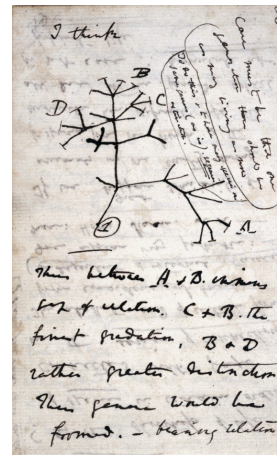 I think
Case must be that one
generation then should be
as many living as now
To do this & to have many species in
same genus (as is) requires
extinction
B
C
D
A
1
Thus between A & B. immense
gap of relation. C & B. the
finest gradation, B & D
rather greater distinction
Thus genera would be
formed. — bearing relation